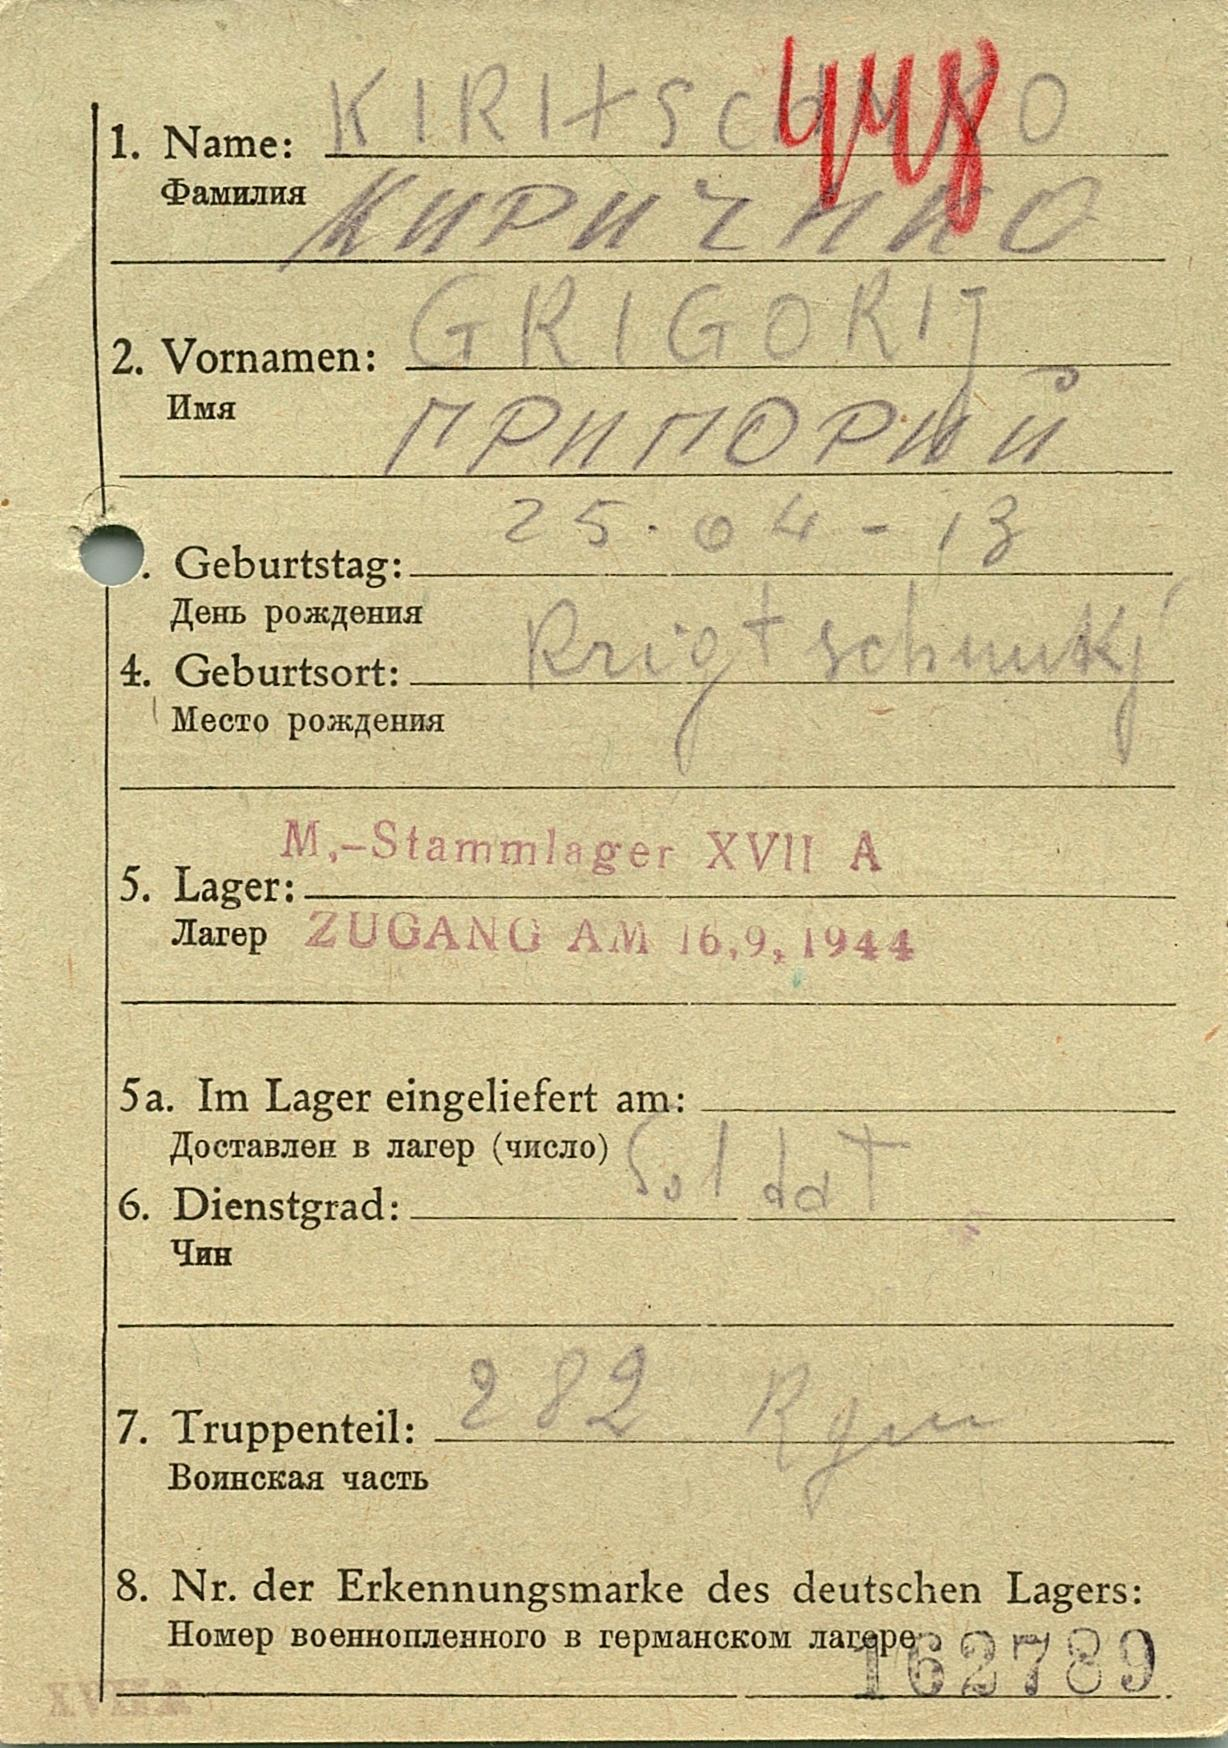 448
KIRITSCHNKO
1. Name:
Фамилия
КИРИЧНКО
GRIGORIJ
2. Vornamen:
Имя
ГРИГОРИЙ
25.04-13
. Geburtstag:
День рождения
4. Geburtsort:
Место рождения
M.-Stammlager XVII A
5. Lager:
Лагер ZUGANG AM 16.9.1944
5a. Im Lager eingeliefert am:
Доставлен в лагер (число)
6. Dienstgrad: Soldat
Чин
7. Truppenteil: 282 Rgm
Воинская часть
8. Nr. der Erkennungsmarke des deutschen Lagers:
Номер военнопленного в германском лагере 162789